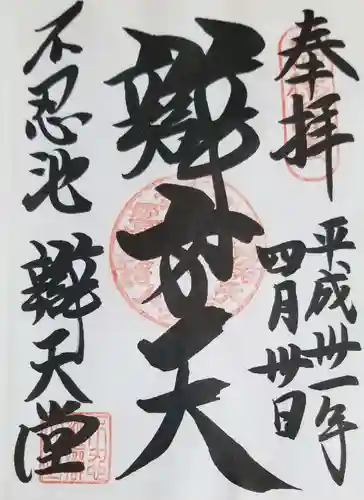 奉拝
平成卅一年
四月卅日
辯才天
不忍池
辯天堂